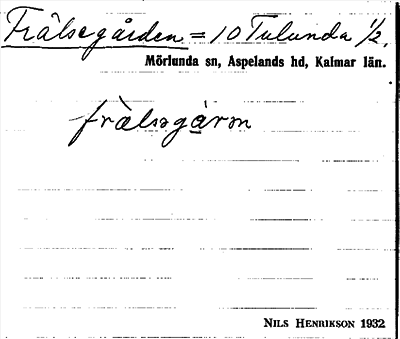 Frälsegården = 10 Tulunda 1/2.
Mörlunda sn, Aspelands hd, Kalmar län.
frälsgårn
NILS HENRIKSON 1932